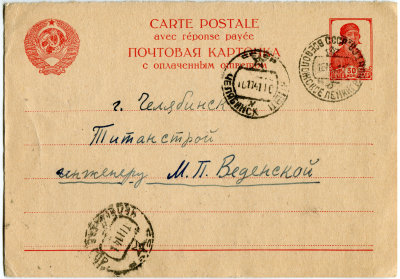 CARTE POSTALE
avec réponse payée
ПОЧТОВАЯ КАРТОЧКА
с оплаченным ответом
г. Челябинск
Титанстрой
инженеру М. П. Веденской
ЧЕЛЯБИНСК